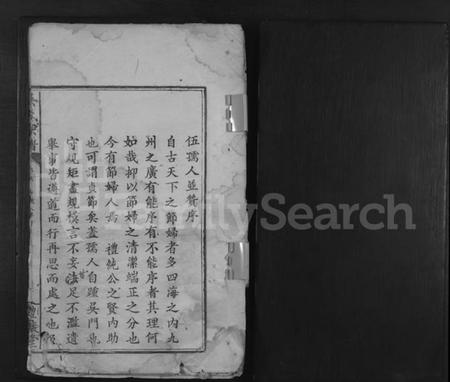 伍孺人並贊序
自古天下之節婦者多四海之内九
州之廣有能序有不能序者其理何
如哉抑以節婦之清潔端正之分也
今有節婦人焉 禮純公之賢内助
也可謂貞節矣蓋孺人自踵吳門也
守規矩畫規模言不妄法足不濫遺
舉事皆遵道而行再思而處之也
FamilySearch